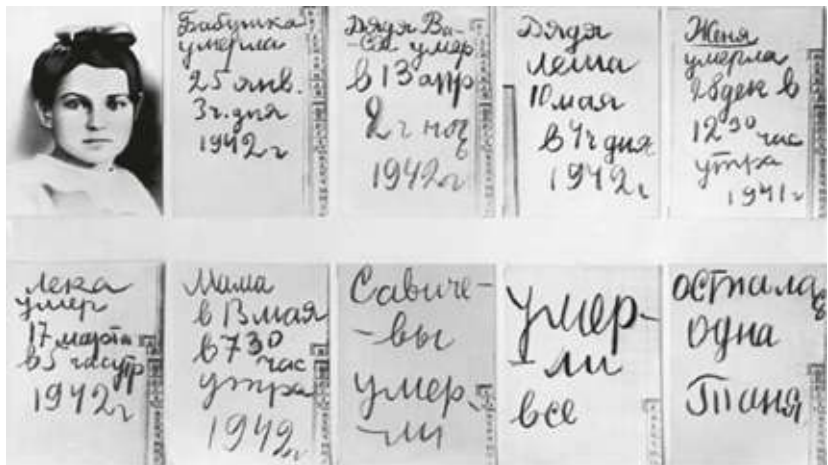 Бабушка
умерла
25 янв.
3ч. дня
1942 г
Дядя Ва-
-ся умер
в 13 апр
2 ч ночь
1942 г
Дядя
Леша
10 мая
в 4ч дня
1942 г
Женя
умерла
28 дек в
12 30 час
утра
1941 г
Лека
умер
17 марта
в 5 час утр
1942 г
Мама
в 13 мая
в 7 30
час
утра
1942 г
Савиче-
-вы
умер-
-ли
умер-
-ли
все
осталась
одна
Таня